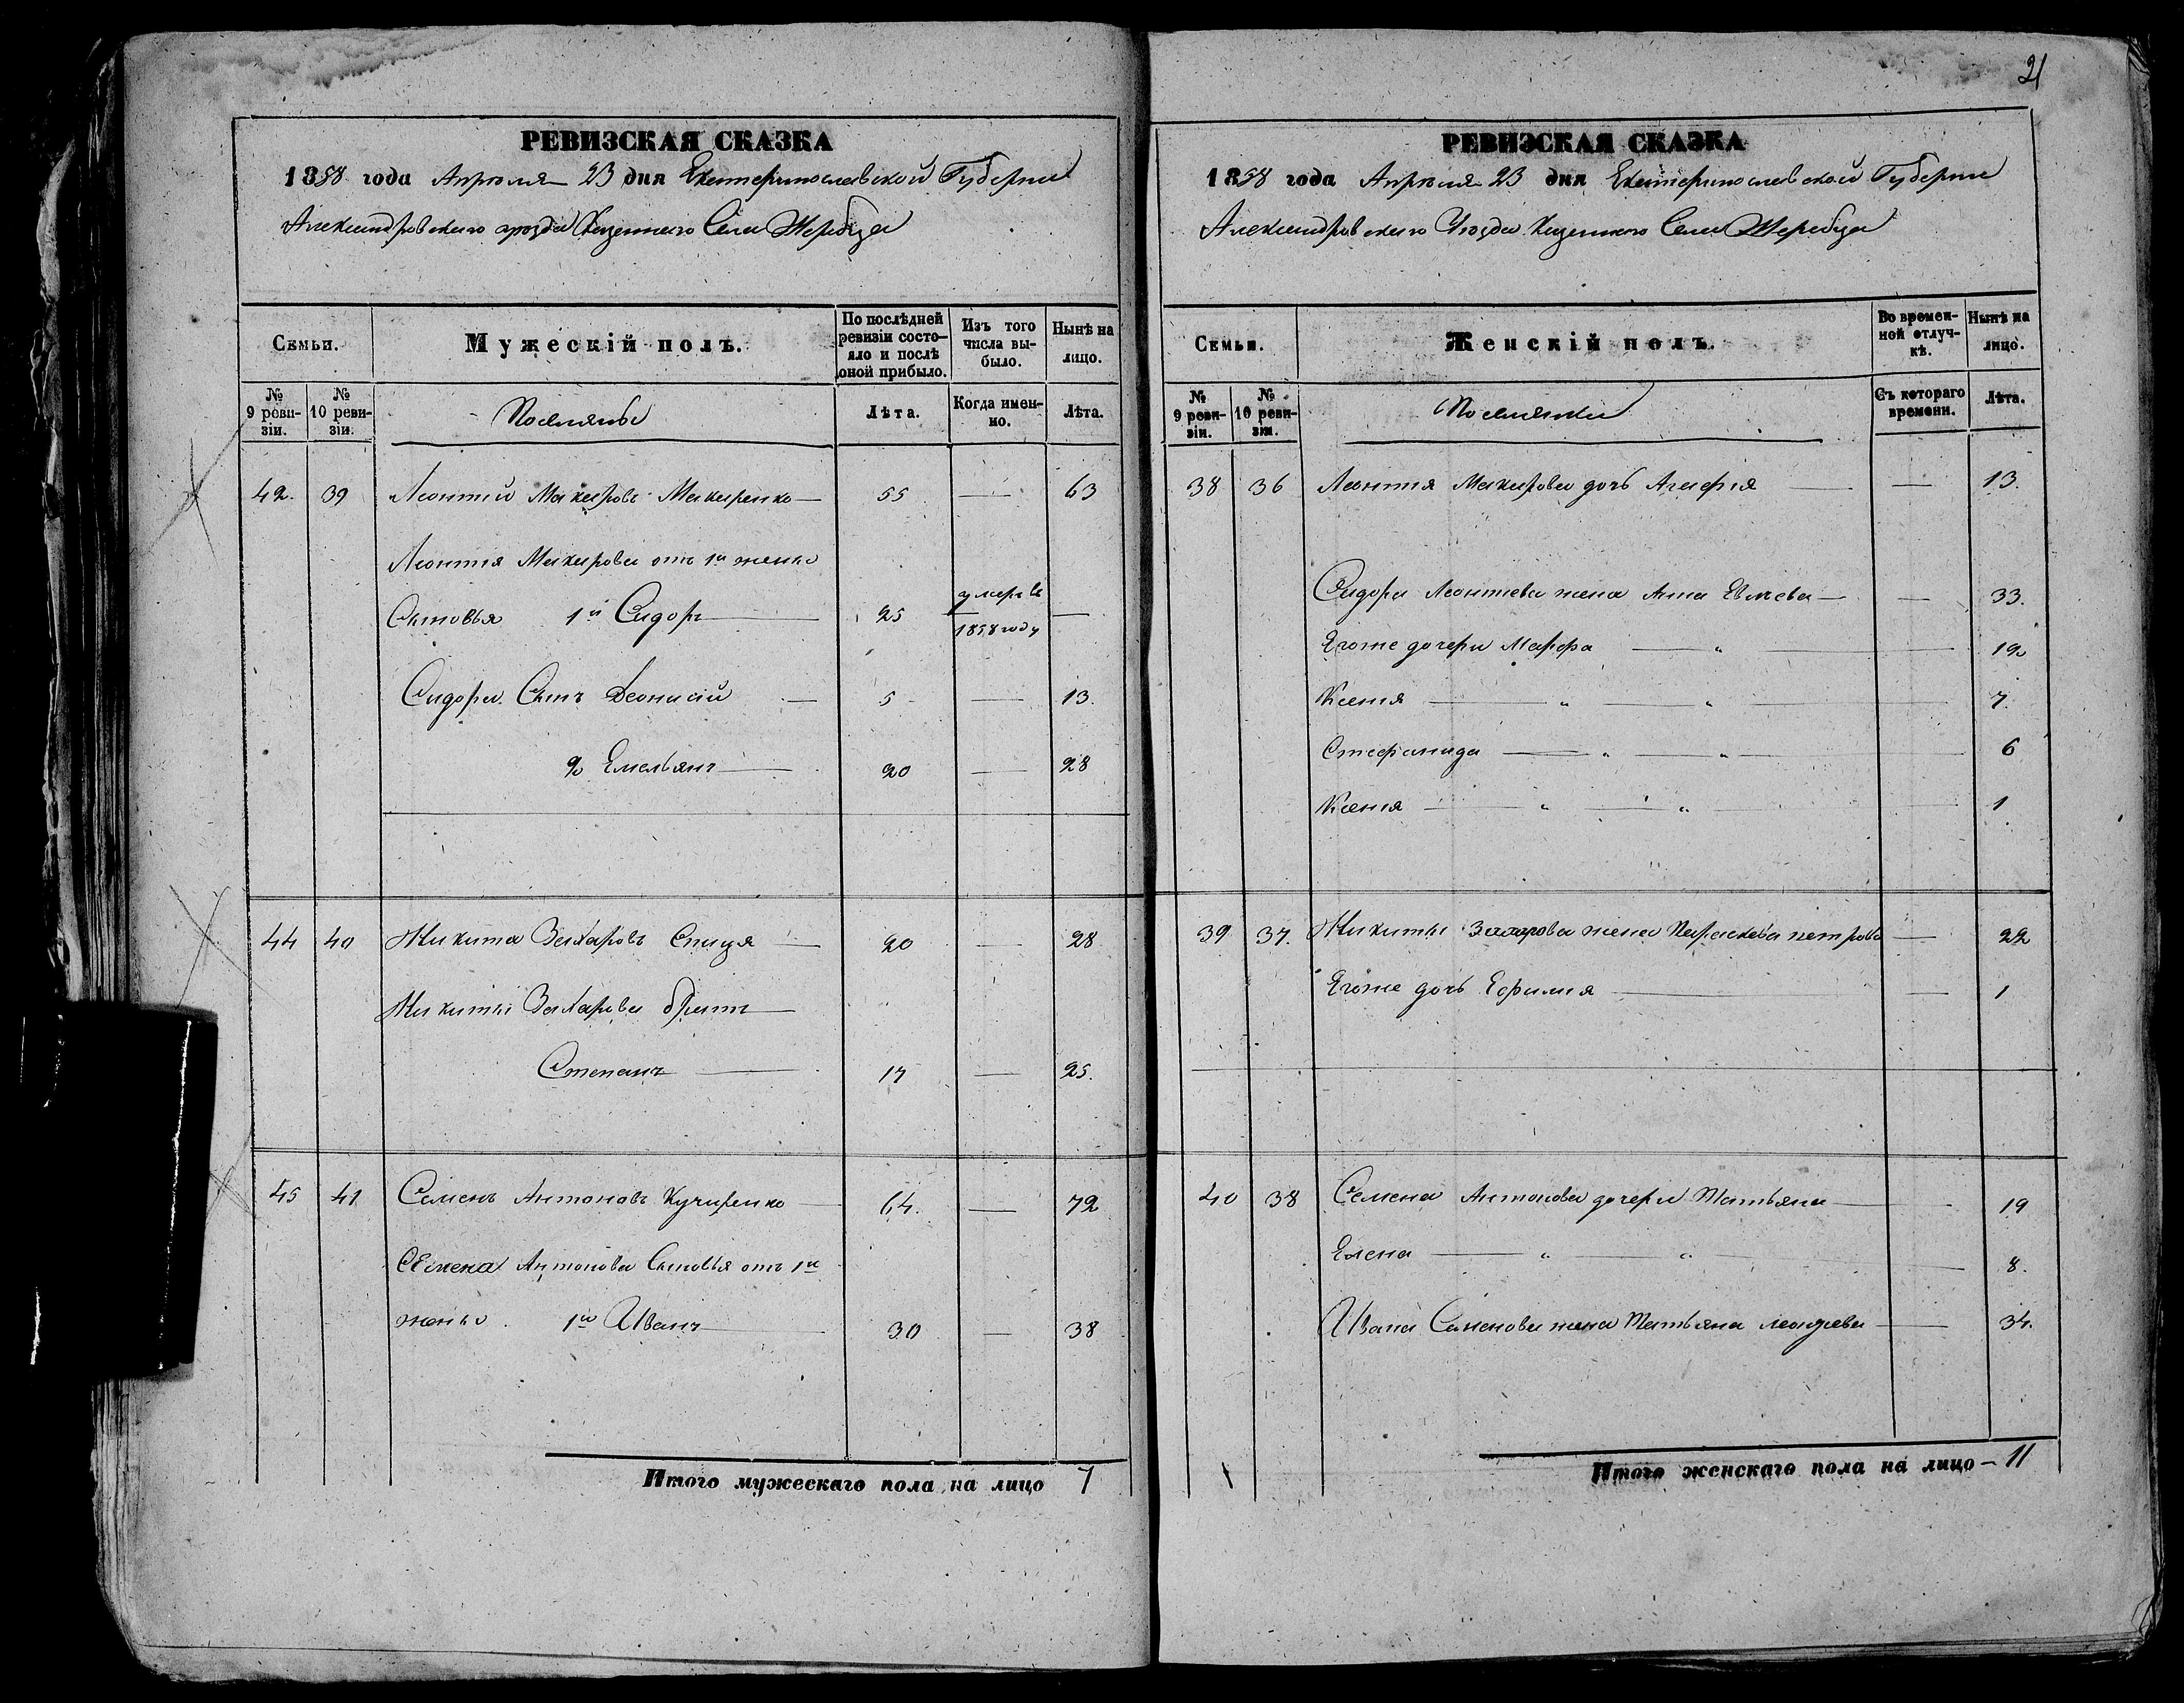 РЕВИЗСКАЯ СКАЗКА
1858 года Апреля 23 дня Екатеринославской Губернии
Александровского уезда Казенного Села Жеребца
Семьи.
Мужескій полъ.
По послѣдней ревизіи состояло и послѣ оной прибыло.
Изъ того числа выбыло.
Нынѣ на лицо.
№ 9 ревизіи.
№ 10 ревизіи.
Поселяне
Лѣта.
Когда именно.
Лѣта.
42. 39 Леонтий Макаровъ Макаренко — 55 — 63
Леонтия Макарова отъ 1й жены
Сыновья 1й Сидоръ — 25 умеръ въ 1858 году —
Сидора Сынъ Деонисій — 5 — 13.
2й Емельянъ — 20 — 28
44 40 Никита Захаровъ Спица — 20 — 28
Никиты Захарова братъ —
Степанъ — 17 — 25.
45 41 Семенъ Антоновъ Кучеренко — 64. — 72
Семена Антонова Сыновья отъ 1й
жены 1й Иванъ — 30 — 38
Итого мужескаго пола на лицо 7
21
РЕВИЗСКАЯ СКАЗКА
1858 года Апреля 23 дня Екатеринославской Губернии
Александровского Уезда Казенного Села Жеребца
Семьи.
Женскій полъ.
Во временной отлучкѣ.
Нынѣ на лицо.
№ 9 ревизіи.
№ 10 ревизіи.
Поселянки
Съ котораго времени.
Лѣта.
38 36 Леонтия Макарова дочь Агафія — — 13.
Сидора Леонтьева жена Анна — — 33.
Егоже дочери Марфа — " — 19
Ксенія — " — " — 7.
Стефанида — " — " — 6
Ксенія — " — " — 1
39 37. Никиты Захарова жена Параскева петрова — 22
Егоже дочь Ефимия — — 1
40 38 Семена Антонова дочери Татьяна — — 19
Елена — " — " — 8.
Ивана Семенова жена Татьяна — — 34.
Итого женскаго пола на лицо — 11